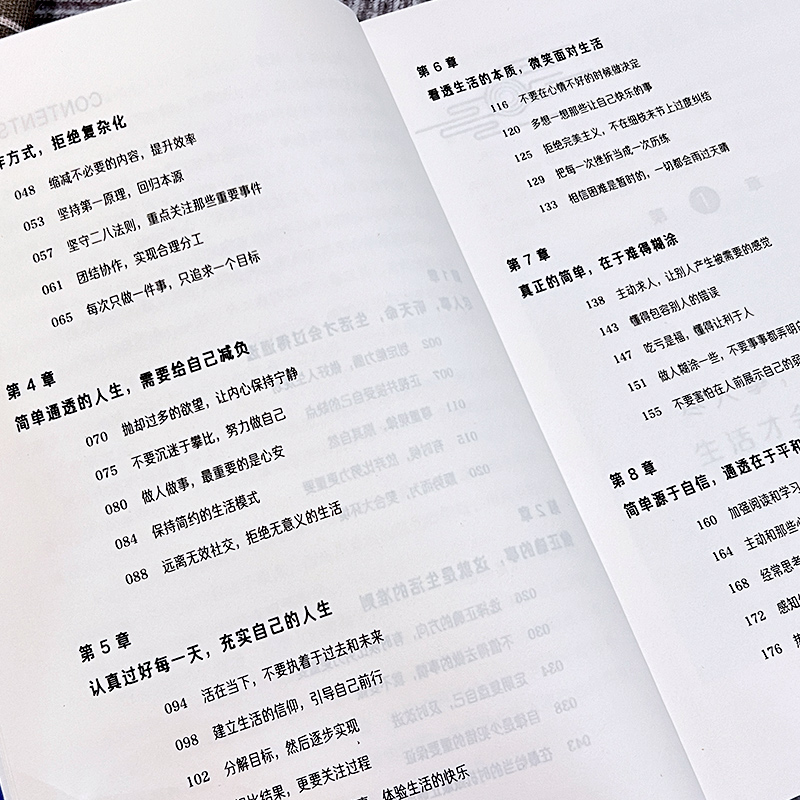 CONTENTS
作方式，拒绝复杂化
048 缩减不必要的内容，提升效率
053 坚持第一原理，回归本源
057 坚守二八法则，重点关注那些重要事件
061 团结协作，实现合理分工
065 每次只做一件事，只追求一个目标
第 4 章
简单通透的人生，需要给自己减负
070 抛却过多的欲望，让内心保持宁静
075 不要沉迷于攀比，努力做自己
080 做人做事，最重要的是心安
084 保持简约的生活模式
088 远离无效社交，拒绝无意义的生活
第 5 章
认真过好每一天，充实自己的人生
094 活在当下，不要执着于过去和未来
098 建立生活的信仰，引导自己前行
102 分解目标，然后逐步实现
相比结果，更要关注过程
体验生活的快乐
第 6 章
看透生活的本质，微笑面对生活
116 不要在心情不好的时候做决定
120 多想一想那些让自己快乐的事
125 拒绝完美主义，不在细枝末节上过度纠结
129 把每一次挫折当成一次历练
133 相信困难是暂时的，一切都会雨过天晴
第 7 章
真正的简单，在于难得糊涂
138 主动求人，让别人产生被需要的感觉
143 懂得包容别人的错误
147 吃亏是福，懂得让利于人
151 做人糊涂一些，不要事事都弄明白
155 不要害怕在人前展示自己的
第 8 章
简单源于自信，通透在于平和
160 加强阅读和学习
164 主动和那些
168 经常思考
172 感知
176